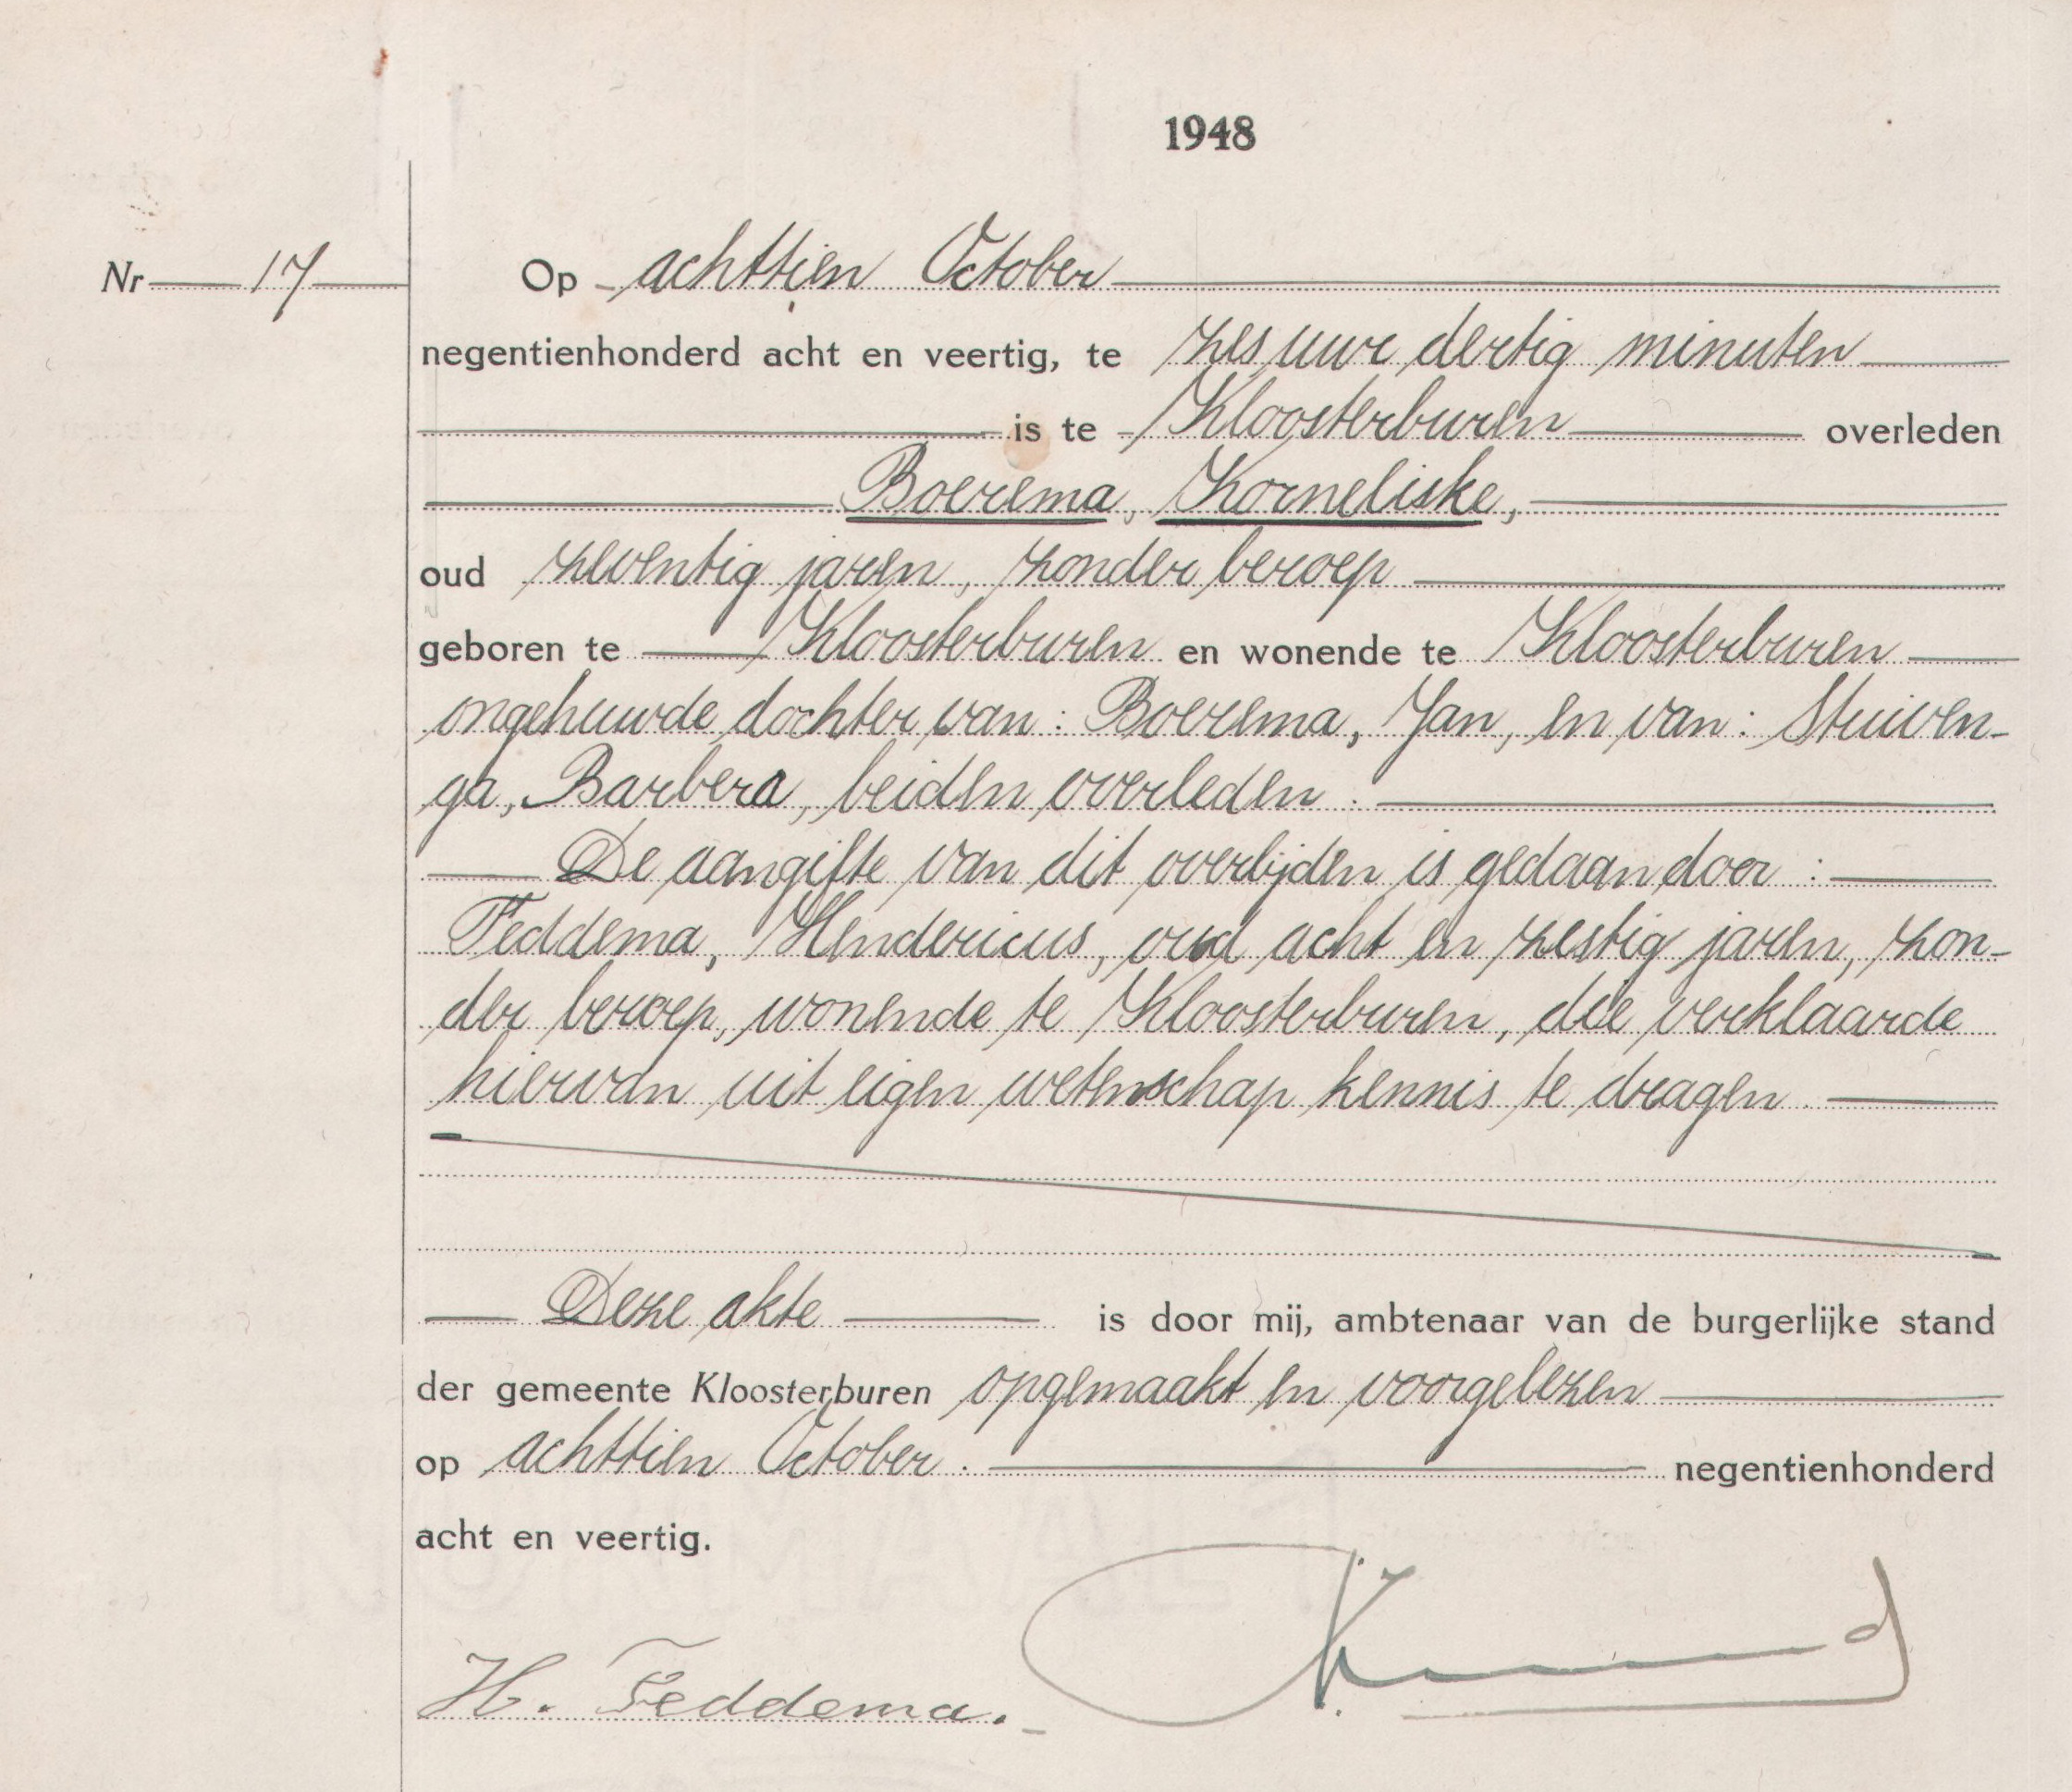 1948
Nr 17
Op achttien October
negentienhonderd acht en veertig, te zes uur dertig minuten
is te Kloosterburen overleden
Boerema, Korneliske,
oud zeventig jaren, zonder beroep
geboren te Kloosterburen en wonende te Kloosterburen
ongehuwde dochter van: Boerema, Jan, en van: Stuiven-
ga, Barbera, beiden overleden.
De aangifte van dit overlijden is gedaan door:
Feddema, Hendericus, oud acht en zestig jaren, zon-
der beroep, wonende te Kloosterburen, die verklaarde
hiervan uit eigen wetenschap kennis te dragen.
Deze akte is door mij, ambtenaar van de burgerlijke stand
der gemeente Kloosterburen opgemaakt en voorgelezen
op achttien October. negentienhonderd
acht en veertig.
H. Feddema.